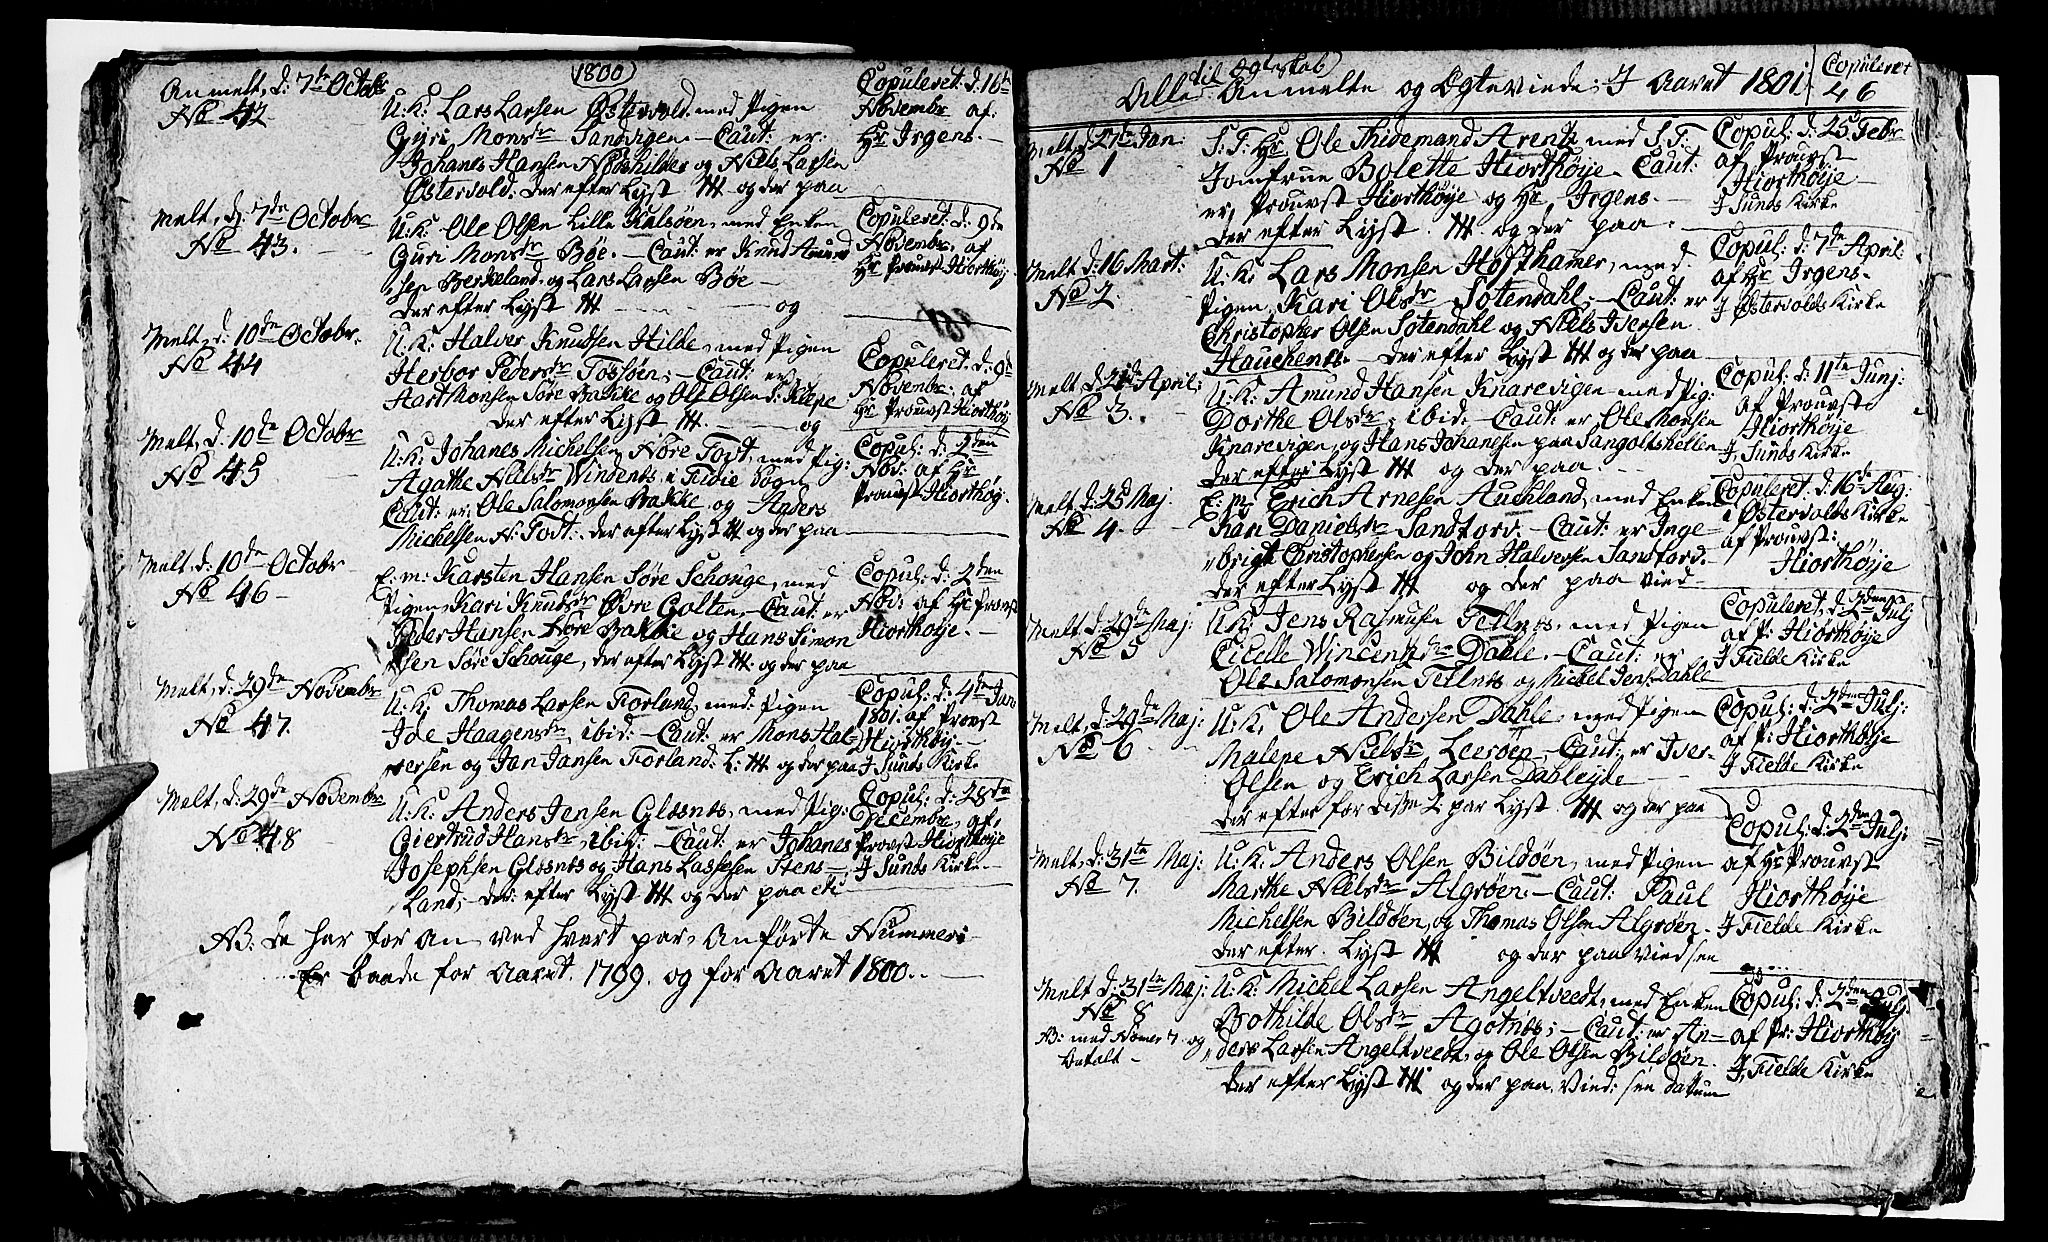 1800
Anmelt, d: 7de Octobr
No 42
U: K: Lars Larsen Østervold med Pigen
Gyri Monsdr Sandvigen. – Caut: er:
Johanes Hansen Røshilder og Niels Larsen
Østervold. der efter Lyst og der paa
Copuleret d: 16te
Novembr af:
Hr Irgens. –
Melt, d: 7de Octobr
No 43. –
U: K: Ole Olsen Lille Kalsøen, med Enken
Guri Monsdr Bøe. – Caut: er Knud Amund
sen Berkeland, og Lars Larsen Bøe –
der efter Lyst og
Copuleret. d: 9de
Novembr. af
Hr Prouvst Hiorthøy.
Melt, d: 10de Octobr.
No 44
U: K: Halver Knudsen Hilde, med Pigen
Herbor Pedersdr Tossøen; – Caut: er
Monsen Søre Bakke og Ole Olsen d: Klepe
der efter Lyst og
Copuleret. d: 9de
Novembr: af
Hr Prouvst Hiorthøy
Melt, d: 10de Octobr
No 45
U: K: Johanes Michelsen Nore Tovt, med Pig:
Agathe Nielsdr Windenes i Fidie Sogn
Caut: er: Ole Salomonsen Bakke og Anders
Michelsen N: Tovt: der efter Lyst og der paa
Copul: d: 2den
Nov: af Hr
Prouvst Hiorthøy.
Melt, d: 10de Octobr
No 46 –
E: m: Karsten Hansen Søre Schouge, med
Pigen Kari Knudsdr Øvre Golten, – Caut: er
Peder Hansen Nore Bakke og Hans Simon
sen Søre Schouge, der efter Lyst og der paa
Copul: d: 2den
Nov: af Hr Prouvst
Hiorthøye. –
Melt, d: 29de Novembr
No 47.
U: K: Thomas Larsen Forland, med: Pigen
Ide Haagensdr, ibid: – Caut: er Mons Hal-
versen og Jan Jansen Forland: L: og der paa
Copul: d: 4de Jan
1801: af Prouvst
Hiorthøy. –
I Sunds Kirke
Melt, d: 29de Novembr
No 48
U: K: Anders Jensen Glesnes, med Pig:
Giertrud Hansdr, ibid: – Caut: er Johanes
Josephsen Glesnes og Hans Lassesen Stens-
Land; – der: efter Lyst og der paa etc
Copul: d: 28de
Decembr, af
Provst Hiorthøye
I Sunds Kirke –
NB: De her for an ved hvert par, Anførte Nummeri –
Er baade for Aaret. 1799. og for Aaret 1800. –
til Ægteskab
Alle Anmelte og Ægteviede; I Aaret 1801:
Copuleret
46
Melt, d 27de Jan:
No 1
S. T. Hr Ole Thidemand Arentz med S. T.
Jomfrue Bolette Hiorthøye. Caut:
er, Prouvst Hiorthøye og Hr Irgens. –
der efter Lyst. og der paa
Copul: d: 25 Febr.
af Prouvst
Hiorthøye –
I Sunds Kirke
Melt d: 16 Mart:
No 2
U: K: Lars Monsen Hoffhamer, med
Pigen Kari Olsdr Sotendahl; – Caut: er
Christopher Olsen Sotendahl og Niels Iversen
Hauchenes. – der efter Lyst og der paa
Copul: d: 7de April:
af Hr Irgens. –
I Østervolds Kirke
Melt, d: 21de April:
No 3.
U: K: Amund Hansen Knarevigen med Pig:
Dorthe Olsdr; ibid: – Caut: er, Ole Monsen
Knarevigen, og Hans Johansen paa Sangoltshellen
der efter Lyst og der paa –
Copul: d: 11te Junj:
af Prouvst
Hiorthøye
I, Sunds Kirke
Melt, d: 25 Maj:
No 4 –
E: m: Erich Arnesen Auchland, med Enken
Kari Danielsdr Sandtorv. – Caut: er Inge-
brigt Christophersen og John Halversen Sandtord. –
der efter Lyst og der paa vied –
Copuleret d: 16de Aug:
i Østervolds Kirke
af Prouvst:
Hiorthøye
Melt d: 29de Maj:
No 5
U: K: Jens Rasmusen Tellnes, med Pigen
Cicelle Wincentzdr Dahle. – Caut: er
Ole Salomonsen Tellnes og Michel Jens: Dahle
Copuleret, d: 2den Julj
af P: Hiorthøye
I Fielde Kirke
Melt, d: 29de Maj:
No 6
U: K: Ole Andersen Dahle, med Pigen
Malene Nielsdr Leerøen, – Caut: er Iver
Olsen og Erich Larsen Dahleyde
der efter for disse 2 par Lyst og der paa
Copul: d: 2den Julj:
af P: Hiorthøye
I Fielde Kirke
Melt, d: 31te Maj:
No 7.
U: K: Anders Olsen Bildøen, med Pigen
Marthe Nielsdr Algrøen. – Caut: Paul
Michelsen Bildøen, og Thomas Olsen Algrøen.
der efter. Lyst og der paa Vied sen
Copul: d: 2den Julj:
af Hr Prouvst
Hiorthøye
I Fielde Kirke
Melt d: 31te Maj:
No 8
NB: med Nomer 7. og
betalt –
U: K: Michel Larsen Angeltveedt, med Enken
Bothilde Olsdr Agotnes; – Caut: er An-
ders Larsen Angeltveedt, og Ole Olsen Bildøen.
der efter Lyst og der paa. Vied: sen datum
Copul: d: 2den Julj
af Pr: Hiorthøy
I, Fielde Kirke